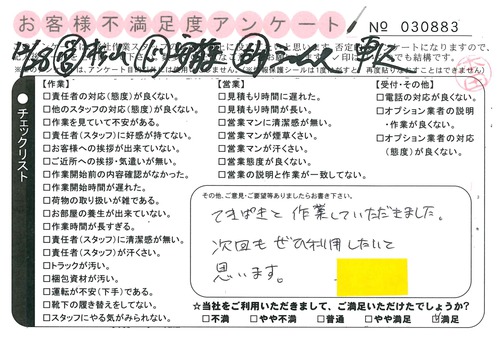 お客様不満足度アンケート
№ 030883
チェックリスト
【作業】
□責任者の対応(態度)が良くない。
□他のスタッフの対応(態度)が良くない。
□作業を見ていて不安がある。
□責任者(スタッフ)に好感が持てない。
□お客様への挨拶が出来ていない。
□ご近所への挨拶・気遣いが無い。
□作業開始前の内容確認がなかった。
□作業開始時間が遅れた。
□荷物の取り扱いが雑である。
□お部屋の養生が出来ていない。
□作業時間が長すぎる。
□責任者(スタッフ)に清潔感が無い。
□責任者(スタッフ)が汗くさい。
□トラックが汚い。
□梱包資材が汚い。
□運転が不安(下手)である。
□靴下の履き替えをしてない。
□スタッフにやる気がみられない。
【営業】
□見積もり時間に遅れた。
□見積もり時間が長い。
□営業マンに清潔感が無い。
□営業マンが煙草くさい。
□営業マンが汗くさい。
□営業態度が良くない。
□営業の説明と作業が一致してない。
【受付・その他】
□電話の対応が良くない。
□オプション業者の説明・作業が良くない。
□オプション業者の対応(態度)が良くない。
その他、ご意見・ご要望等ありましたらお書き下さい。
てきぱきと作業していただきました。
次回もぜひ利用したいと
思います。
☆当社をご利用いただきまして、ご満足いただけたでしょうか?
□不満 □やや不満 □普通 □やや満足 ☑満足